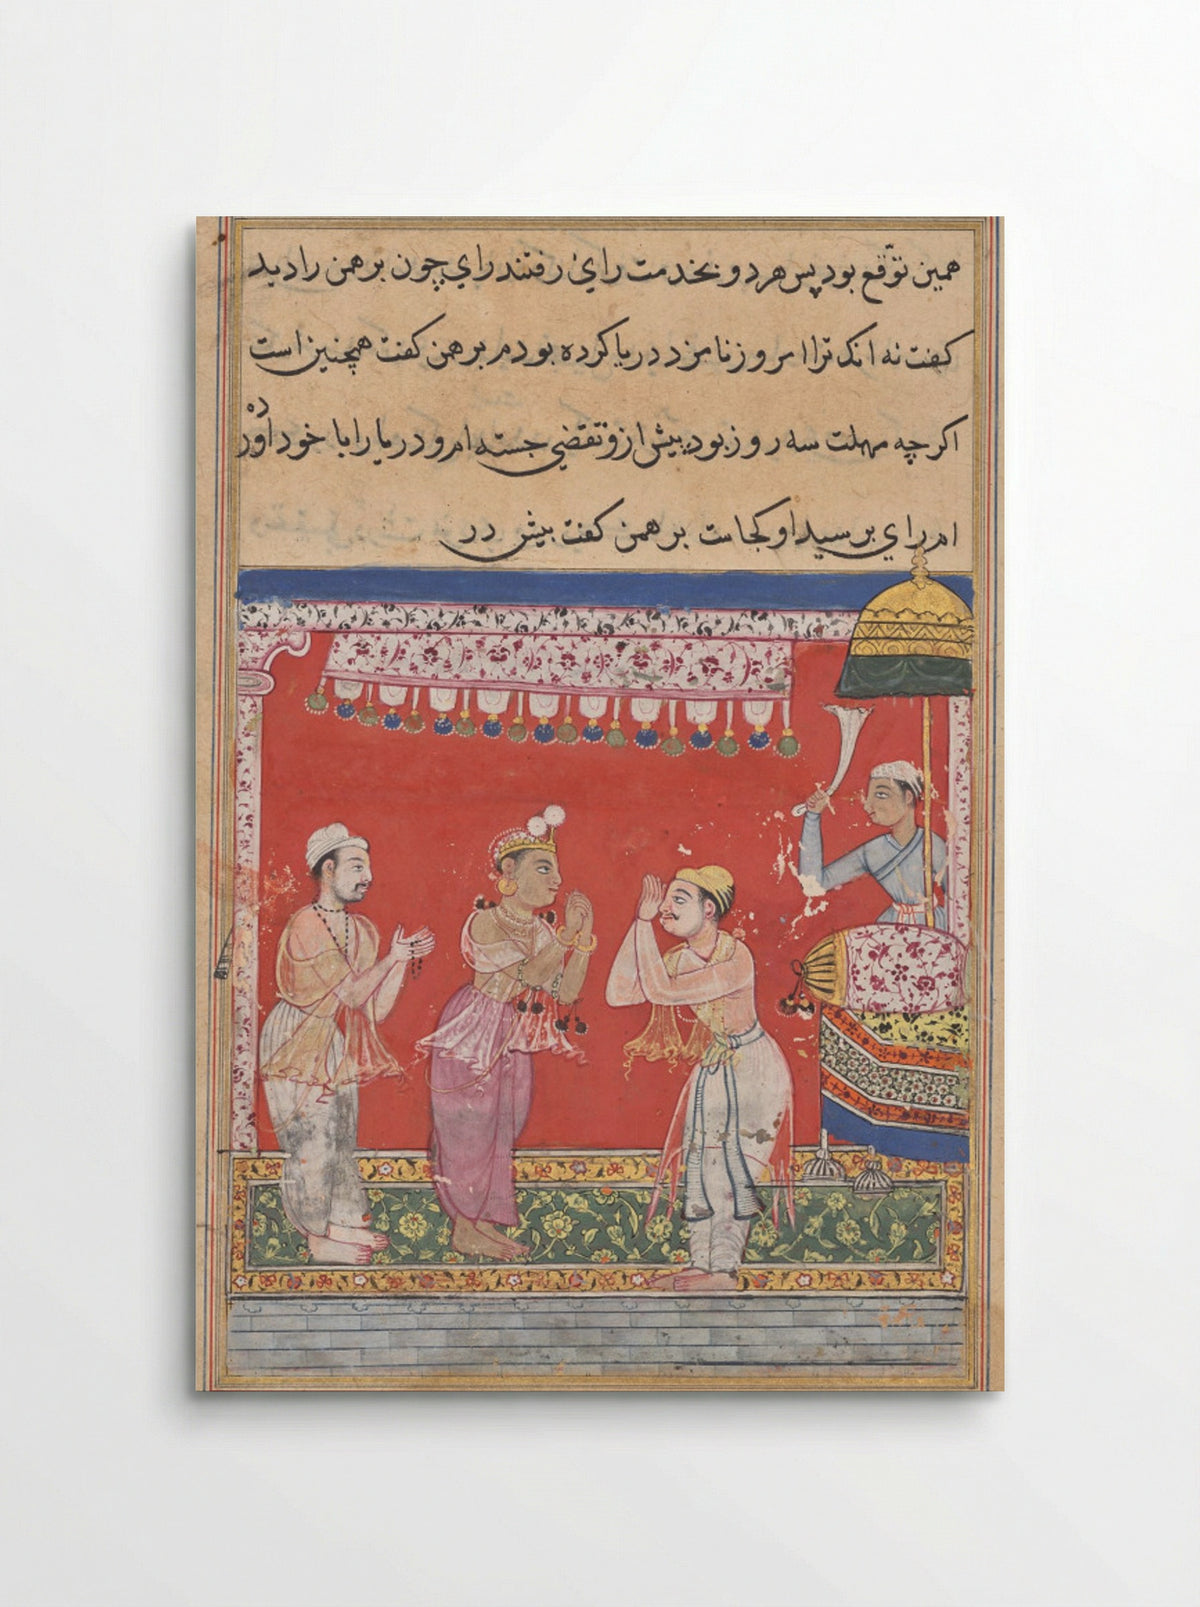 همین توّقع بود پس هر دو بخدمت رایٔ رفتند رای چون برهمن را دید
کفت نه انک ترا امروز نامزد دریا کرده بودم برهمن کفت همچنین است
اکرچه مهلت سه روز بود پیش از و تقضی جسته ام و دریا را با خود آورده
ام رای برسید او کجاست برهمن کفت بیش در